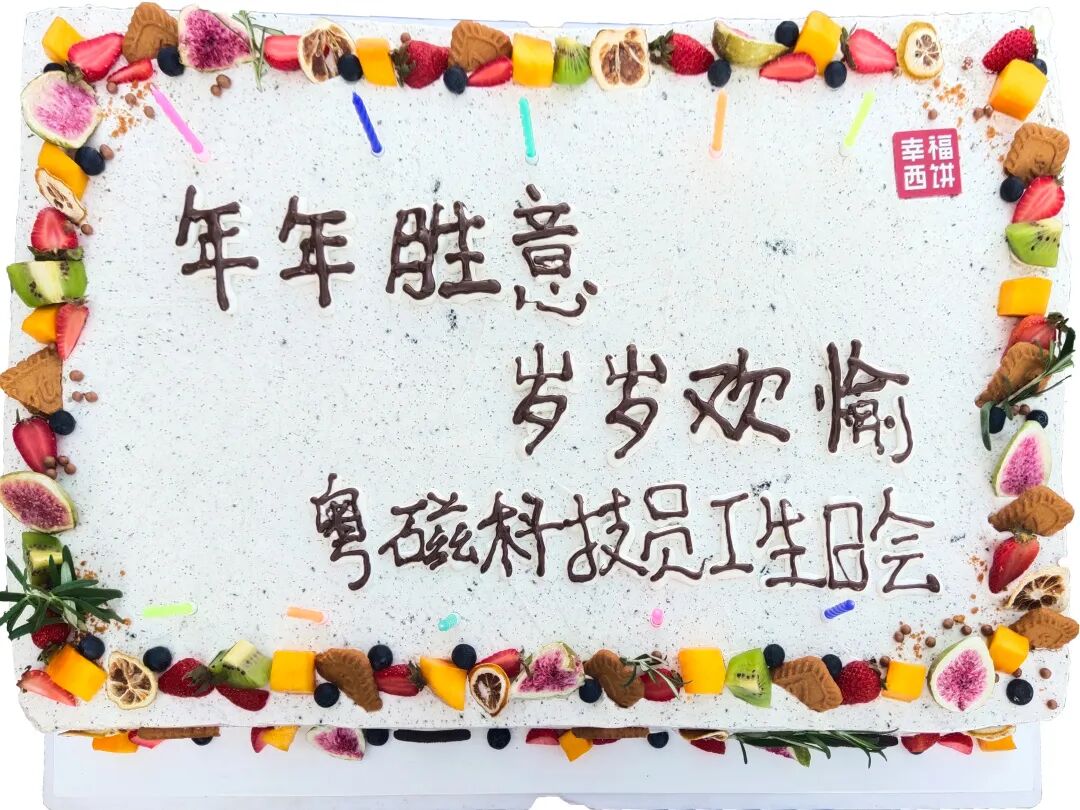 幸福
西饼
年年胜意
岁岁欢愉
粤磁科技员工生日会